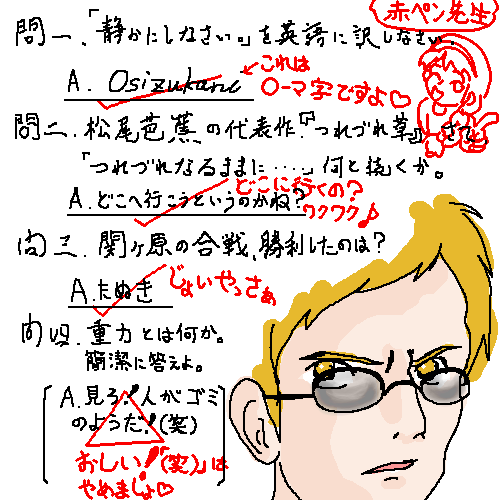 赤ペン先生
問一、「静かにしなさい。」を英語に訳しなさい。
A. Osizukani
これは
ローマ字ですよ♡
問二、松尾芭蕉の代表作『つれづれ草』さて、
「つれづれなるままに……」何と続くか。
A.どこへ行こうというのかね?
どこに行くの?
ワクワク♪
問三、関ヶ原の合戦、勝利したのは?
A.たぬき
じょいやっさぁ
問四.重力とは何か。
簡潔に答えよ。
A.見ろ!人がゴミ
のようだ!(笑)
おしい!「(笑)」は
やめましょ♡